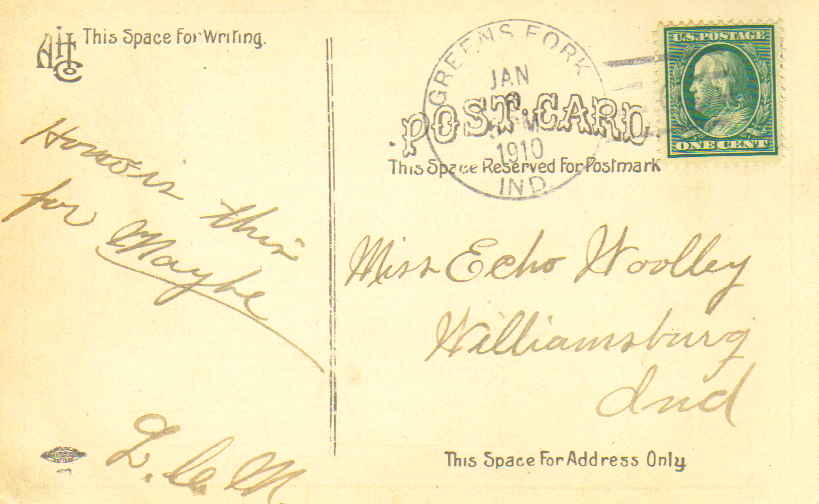 AHCo
This Space For Writing.
GREENS FORK
JAN
M
1910
IND.
U.S. POSTAGE
ONE CENT
POST CARD
This Space Reserved For Postmark
How is this
for Maybe
L. C. M.
Miss Echo Woolley
Williamsburg
Ind
This Space For Address Only